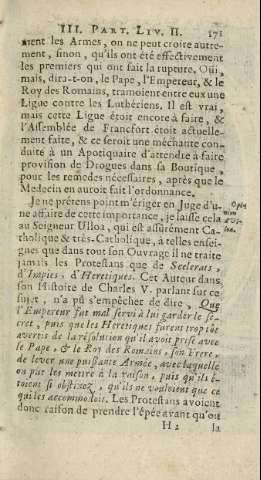 III. PART. LIV. II. 171
ment les Armes, on ne peut croire autre-
ment, sinon, qu'ils ont été effectivement
les premiers qui ont fait la rupture. Oüi,
mais, dira-t-on, le Pape, l'Empereur, & le
Roy des Romains, tramoient entre eux une
Ligue contre les Luthériens. Il est vrai,
mais cette Ligue étoit encore à faire, &
l'Assemblée de Francfort étoit actuelle-
ment faite, & ce seroit une méchante con-
duite à un Apotiquaire d'attendre à faire
provision de Drogues dans sa Boutique,
pour les remedes nécessaires, après que le
Medecin en auroit fait l'ordonnance.
Je ne prétens point m'ériger en Juge d'u-
ne affaire de cette importance, je laisse cela
au Seigneur Ulloa, qui est assurément Ca-
tholique & très-Catholique, à telles ensei-
gnes que dans tout son Ouvrage il ne traite
jamais les Protestans que de Scelerats,
d'Impies, d'Heretiques. Cet Auteur dans
son Histoire de Charles V. parlant sur ce
sujet, n'a pû s'empêcher de dire, Que
l'Empereur fut mal servi à lui garder le se-
cret, puis que les Heretiques furent trop tôt
avertis de la résolution qu'il avoit prise avec
le Pape, & le Roy des Romains, son Frere,
de lever une puissante Armée, avec laquelle
on pût les mettre à la raison, puis qu'ils é-
toient si obstinez, qu'ils ne vouloient que ce
qui les accommodois. Les Protestans avoient
donc raison de prendre l'épée avant qu'on
H 2 la
Opi
nion
d'U-
loa.